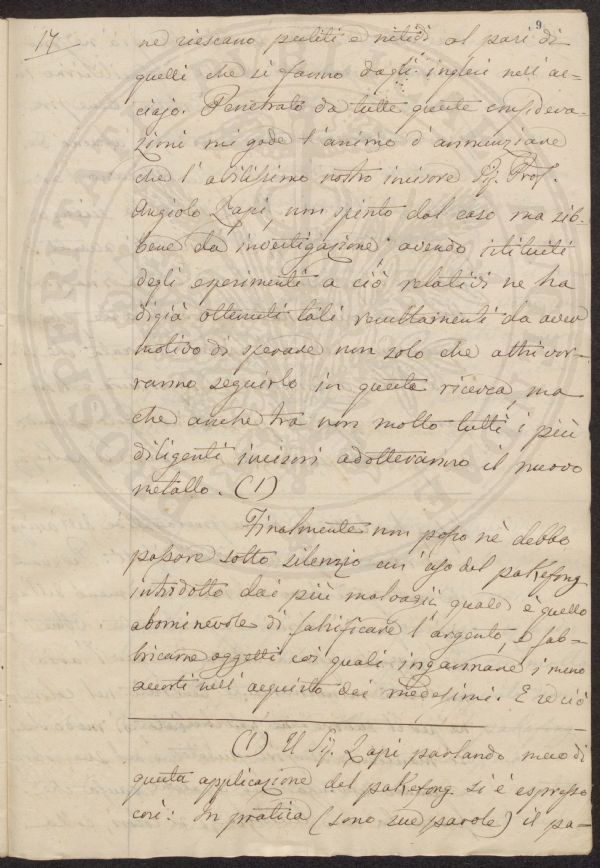 17
9
ne riescano puliti e nitidi al pari di
quelli che si fanno dagli inglesi nell'ac-
ciajo. Penetrato da tutte queste considera-
zioni mi gode l'animo d'annunziare
che l'abilissimo nostro incisore Sig. Prof.
Angiolo Zapi, non spinto dal caso ma sib-
bene da investigazione, avendo istituiti
degli esperimenti a ciò relativi ne ha
digià ottenuti tali resultamenti da aver
motivo di sperare non solo che altri vor-
ranno seguirlo in questa ricerca, ma
che anche tra non molto tutti i più
diligenti incisori adotteranno il nuovo
metallo. (1)
Finalmente non posso nè debbo
passare sotto silenzio un'uso del pakfong
introdotto dai più malvagi, quale è quello
abominevole di falsificare l'argento, e fab-
bricarne oggetti coi quali ingannare i meno
accorti nell'acquisto dei medesimi. E se ciò
(1) Il Sig. Zapi parlando meco di
questa applicazione del pakfong si è espresso
così: In pratica (sono sue parole) il pa-